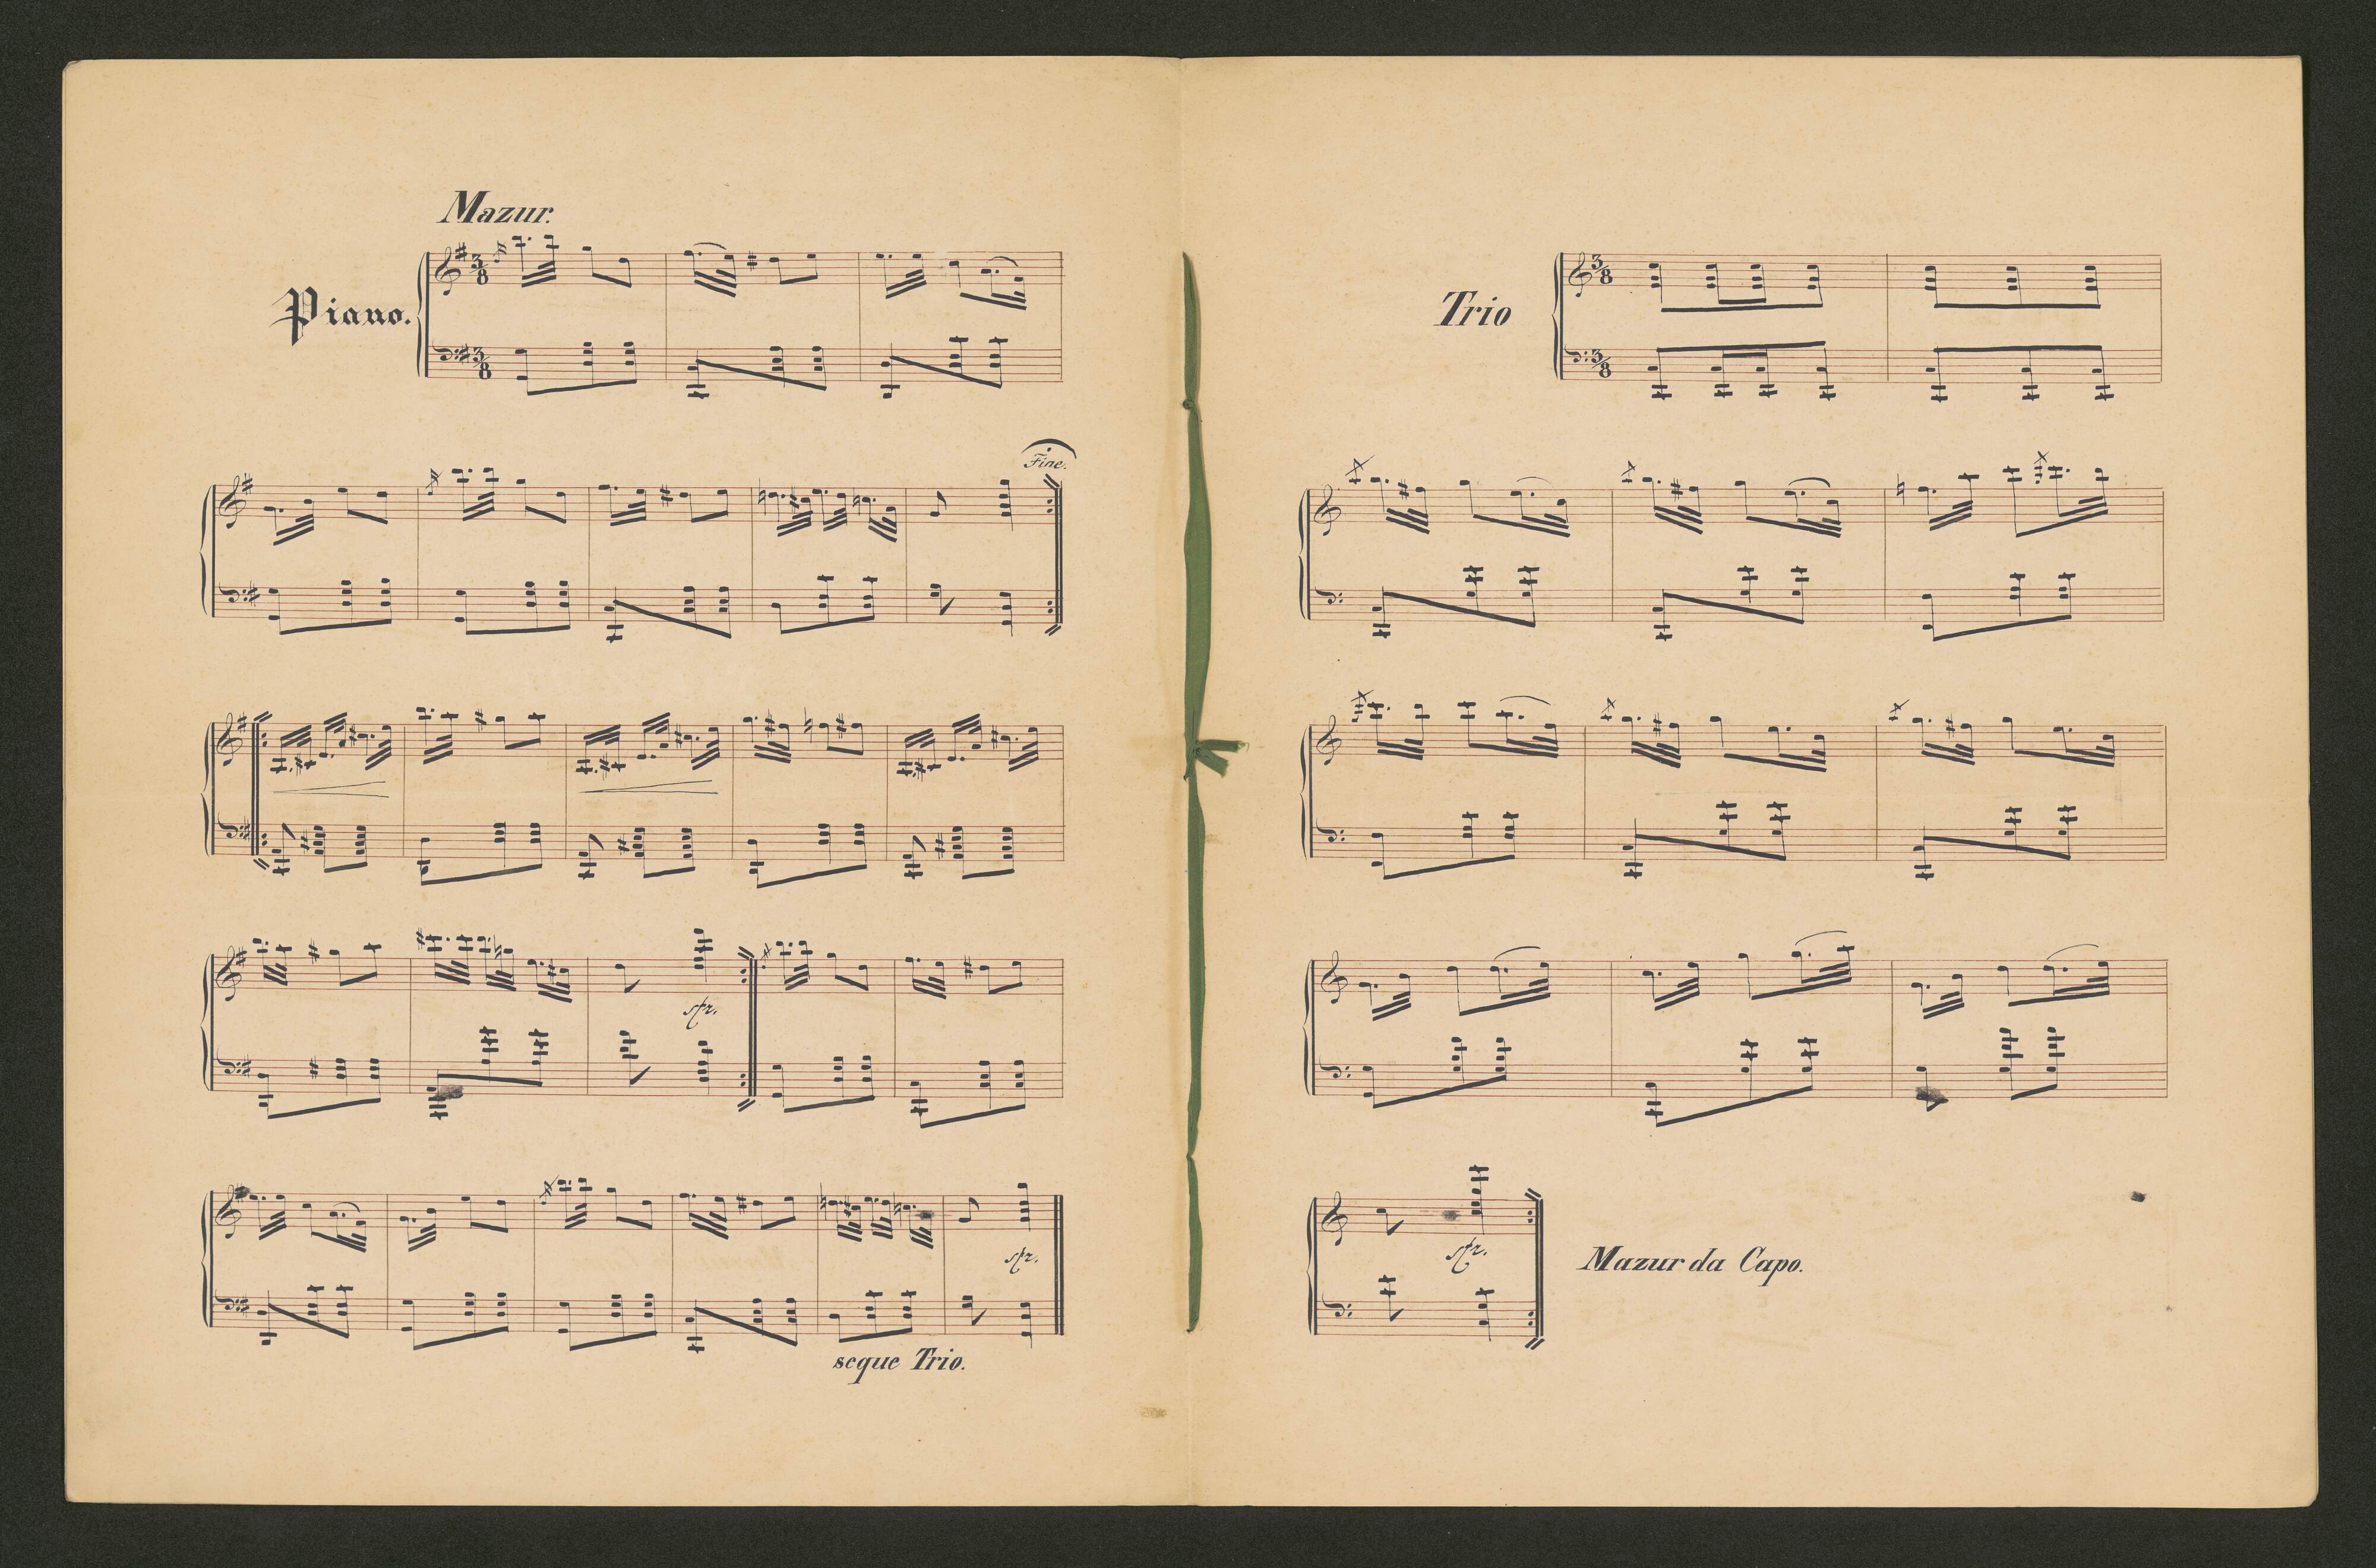 Mazur.
Piano.
3/8
3/8
Fine.
sfz.
sfz.
seque Trio.
Trio
3/8
3/8
sfz.
Mazur da Capo.